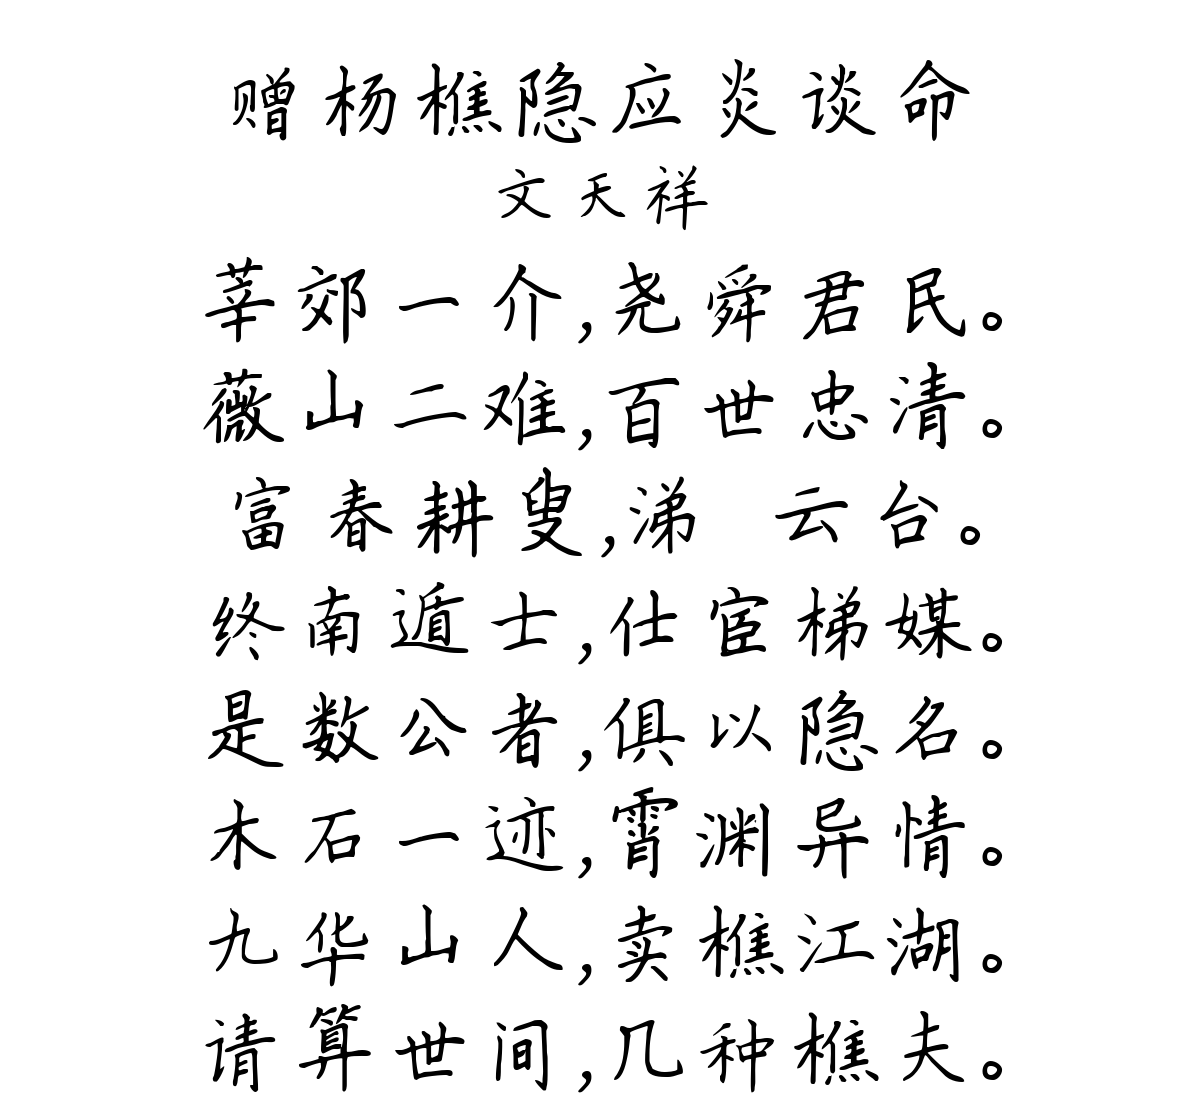 赠杨樵隐应炎谈命
文天祥
莘郊一介,尧舜君民。
薇山二难,百世忠清。
富春耕叟,涕 云台。
终南遁士,仕宦梯媒。
是数公者,俱以隐名。
木石一迹,霄渊异情。
九华山人,卖樵江湖。
请算世间,几种樵夫。